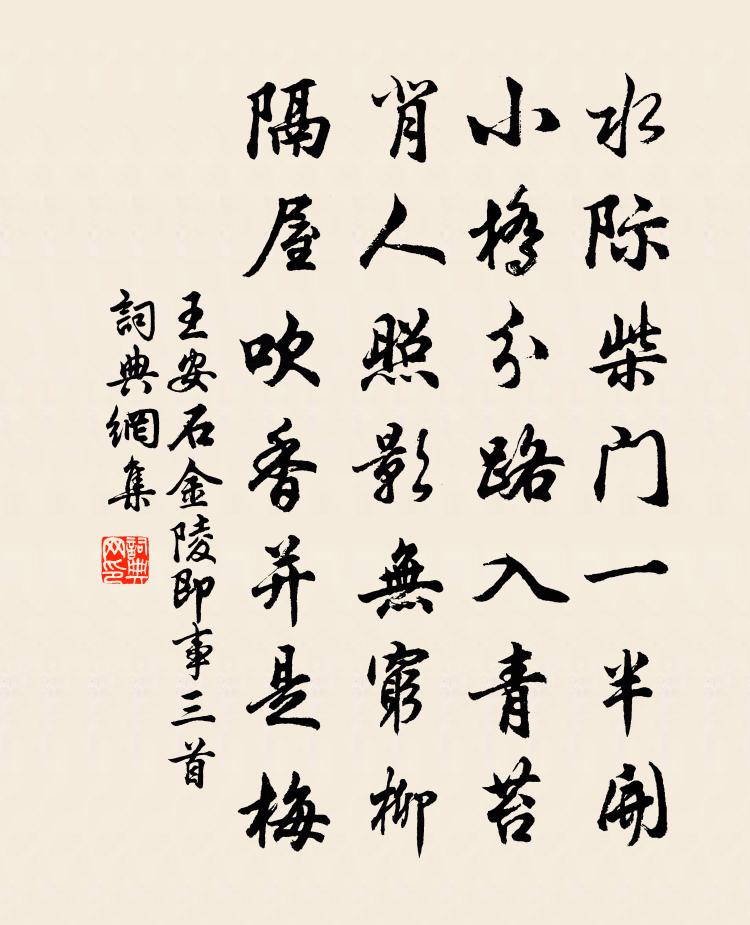 水际柴门一半開
小橋分路入青苔
背人照影無窮柳
隔屋吹香并是梅
王安石金陵即事三首
詞典網集
詞典网印